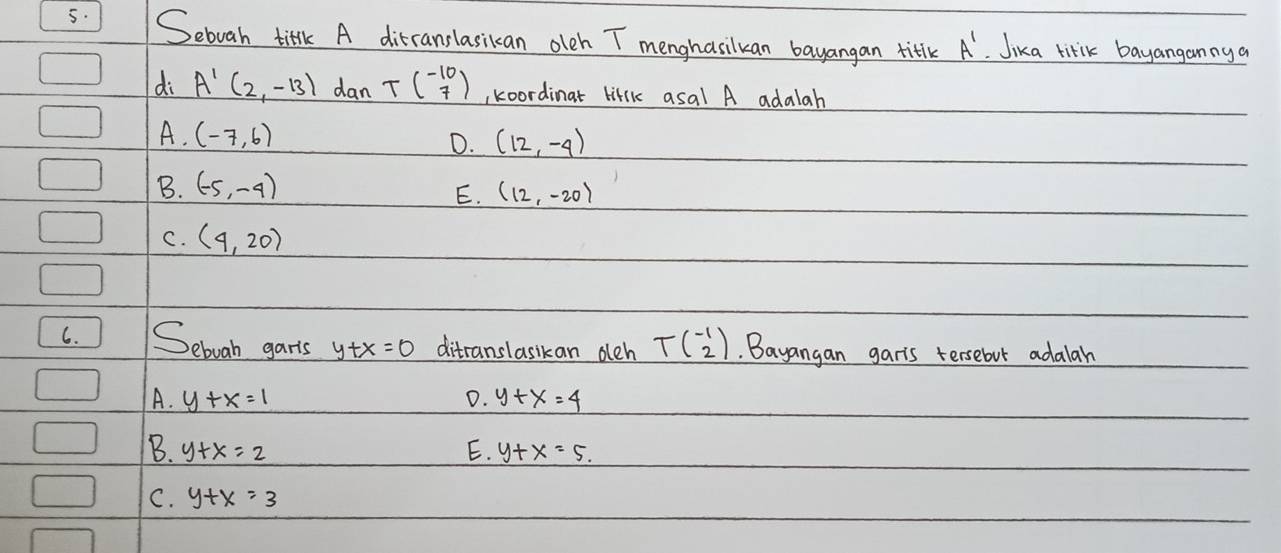 5. Sebuah titik A ditranslasikan oleh T menghasilkan bayangan titik A'. Jika titik bayangannya
di A' (2, -13) dan T (-10 7), koordinat titik asal A adalah
A. (-7, 6) D. (12, -4)
B. (-5, -4) E. (12, -20)
C. (4, 20)
6. Sebuah garis y+x=0 ditranslasikan oleh T (-1 2). Bayangan garis tersebut adalah
A. y+x=1 D. y+x=4
B. y+x=2 E. y+x=5.
C. y+x=3